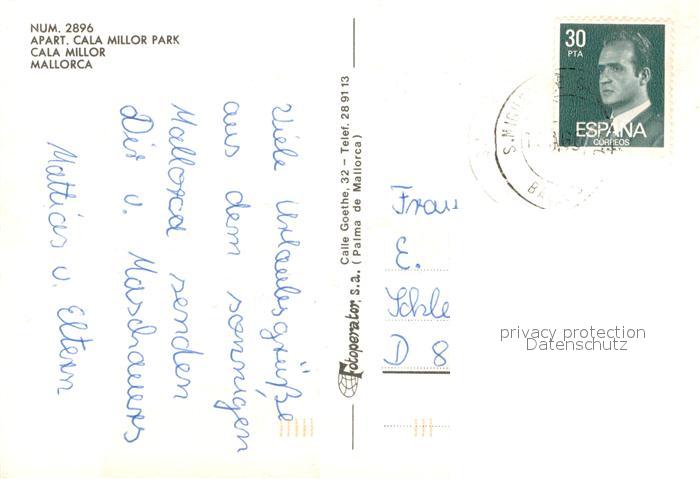 NUM. 2896
APART. CALA MILLOR PARK
CALA MILLOR
MALLORCA
Viele Urlaubsgrüße
aus dem sonnigen
Mallorca senden
Dir v. Maschauers
Mattias u. Eltern
Fotoperator, s.a.
Calle Goethe, 32 – Telef. 28 91 13
(Palma de Mallorca)
30
PTA
ESPAÑA
CORREOS
S.MIGU
BA
Frau
E.
Schle
D 8
privacy protection
Datenschutz